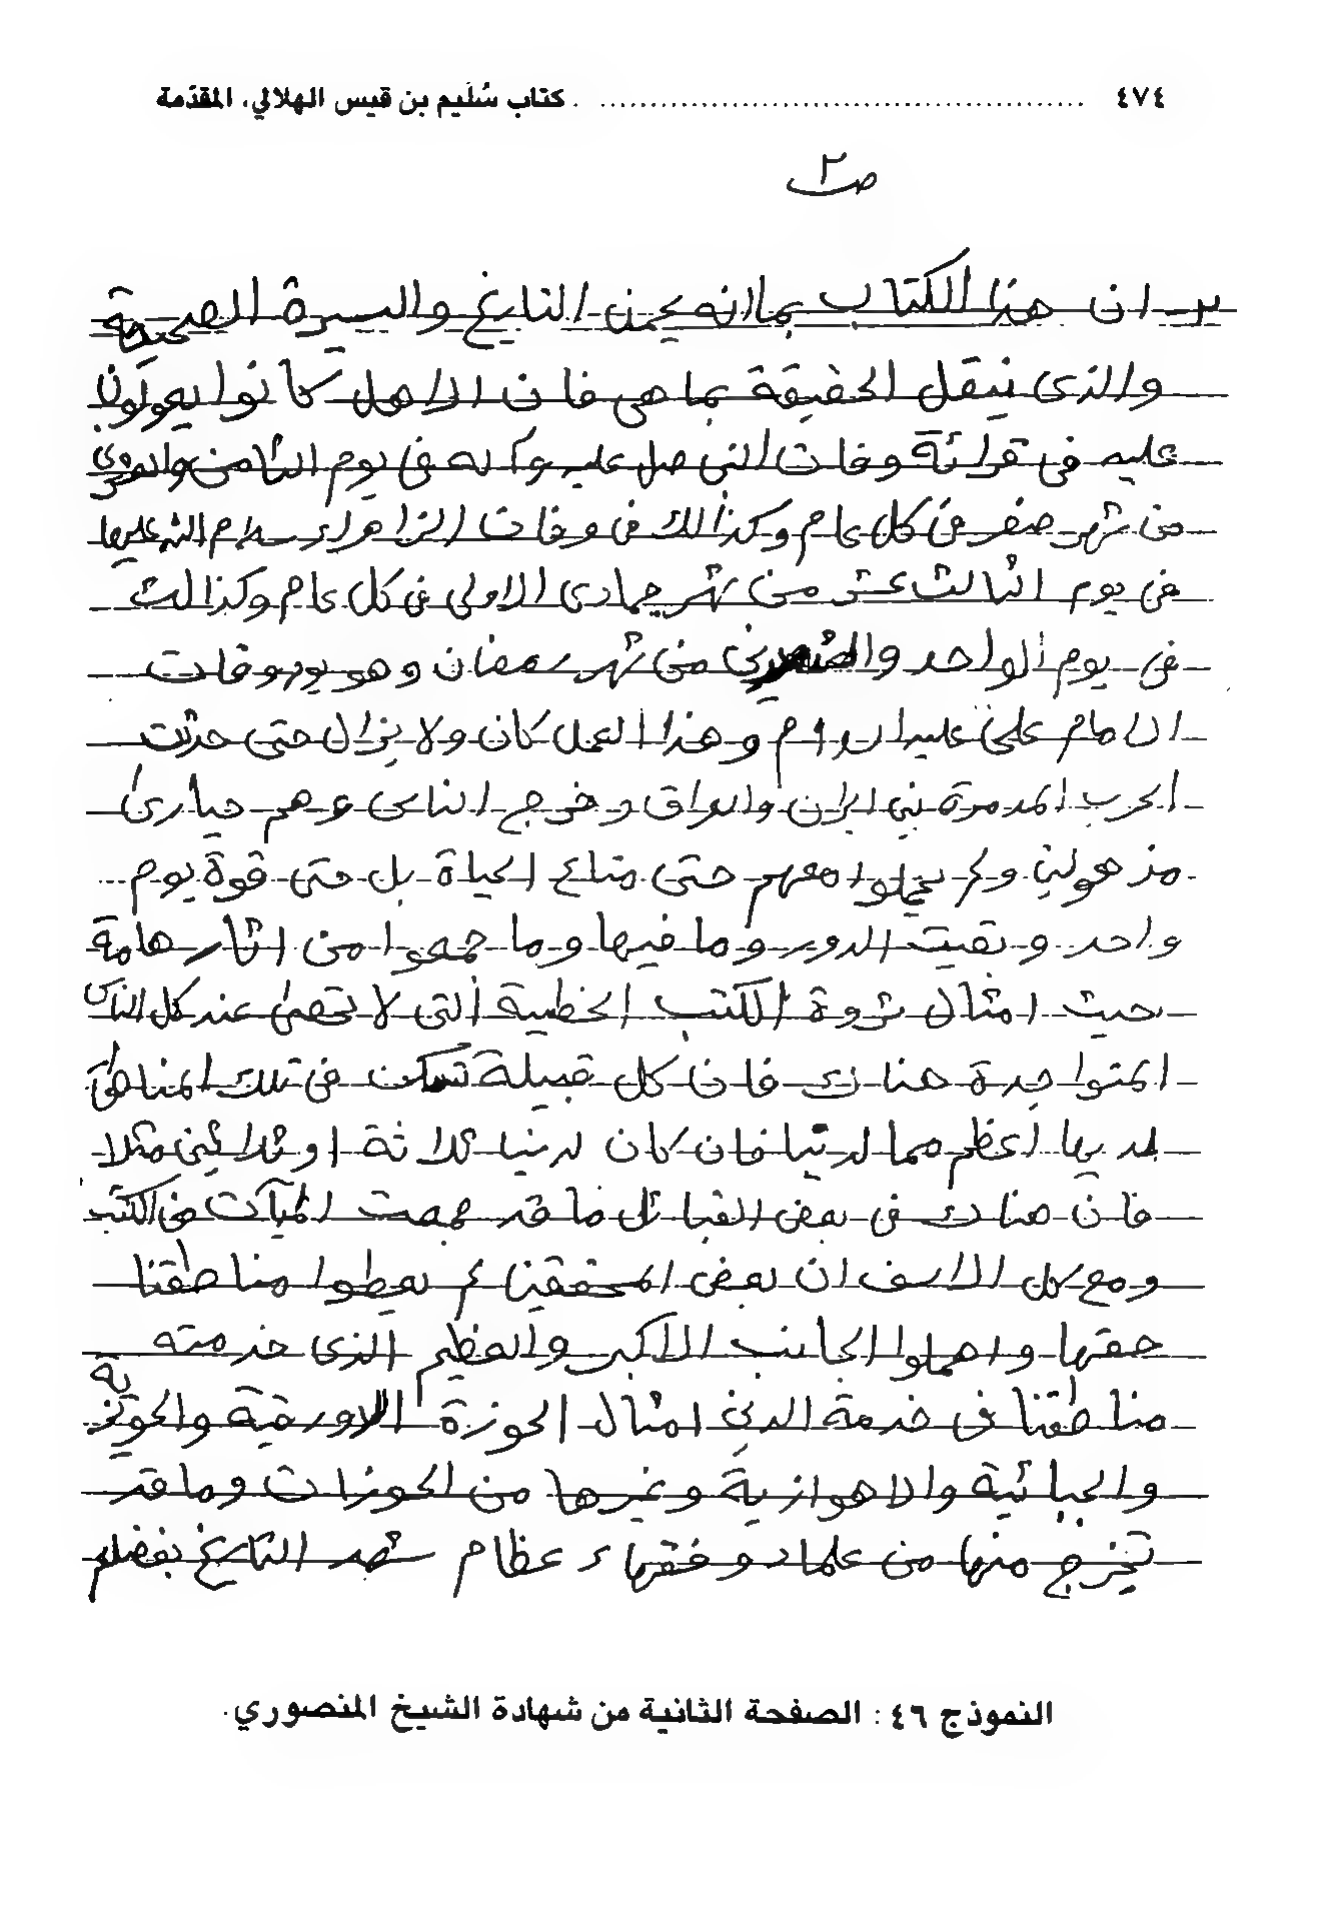 ٤٧٤ ................................................ كتاب سُلَيم بن قيس الهلالي، المقدّمة
ص٢
٢ـ ان هذا الكتاب بما انه يحمل التاريخ والسيرة الصحيحة
والذى ينقل الحقيقة بما هى فان الاهل كانوا يعولون
عليه فى قرائة وفات النبى صل عليه وآله فى يوم الثامن والعشرين
من شهر صفر فى كل عام وكذالك فى وفات الزاهراء سلام الله عليها
فى يوم الثالث عشر من شهر جمادى الاولى فى كل عام وكذالك
فى يوم الواحد والعشرين من شهر رمضان وهو يوم وفات
الامام على عليه السلام وهذا العمل كان ولا يزال حتى حدثت
الحرب المدمرة بين ايران والعراق وخرج الناس وهم حيارى
مذهولين ولم يحملوا معهم حتى متاع الحياة بل حتى قوة يوم
واحد وبقيت الدور وما فيها وما جمعوا من اثار هامة
حيث امثال ثروة الكتب الخطية التى لا تحصى عند كل الناس
المتواجدة هناك فان كل قبيلة تسكن فى تلك المناطق
لديها أعظم مما لدينا فان كان لدينا ثلاثة او ثلاثين مثلا
فان هناك فى بعض القبائل ما قد جمعت المآت من الكتب
ومع كل الاسف ان بعض المحققين لم يعطوا مناطقنا
حقها واهملوا الجانب الاكبر والعظيم الذى خدمته
مناطقنا فى خدمة الدين امثال الحوزة الدورقية والحويزية
والجبائية والاهوازية وغيرها من الحوزات وما قد
تخرج منها من علماء وفقهاء عظام شهد التاريخ بفضلهم
النموذج ٤٦ : الصفحة الثانية من شهادة الشيخ المنصوري.